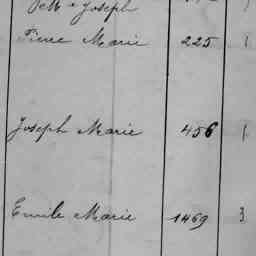 Joseph
Pierre Marie 225 1
Joseph Marie 456 1
Emile Marie 1469 3